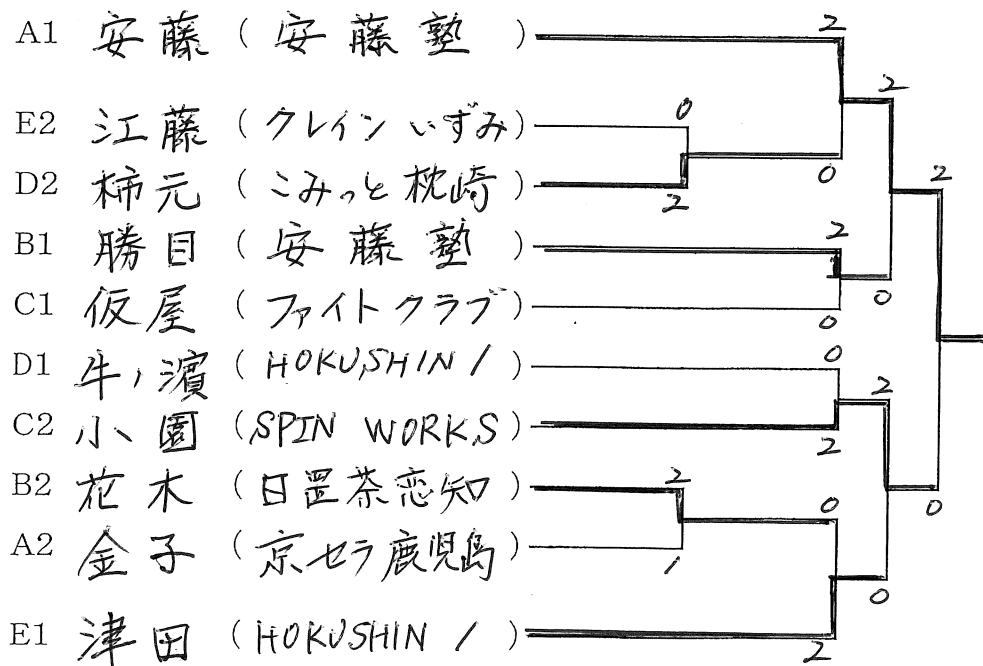 A1 安藤 (安藤塾)
E2 江藤 (クレインいずみ)
D2 柿元 (こみっと枕崎)
B1 勝目 (安藤塾)
C1 仮屋 (ファイトクラブ)
D1 牛ノ濱 (HOKUSHIN /)
C2 小園 (SPIN WORKS)
B2 花木 (日置茶恋知)
A2 金子 (京セラ鹿児島)
E1 津田 (HOKUSHIN /)
2
2
0
0
2
2
2
2
0
0
0
2
2
2
0
0
1
0
2